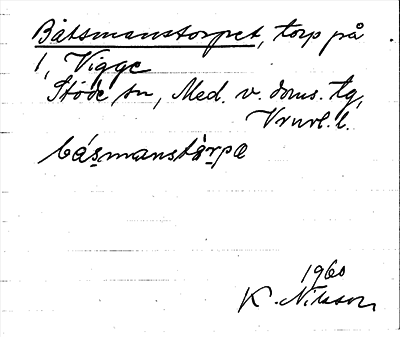 Båtsmanstorpet, torp på
1, Vigge
Stöde sn, Med. v. doms. tg,
Vnrl. l.
båsmanstårpe
1960
K. Nilsson